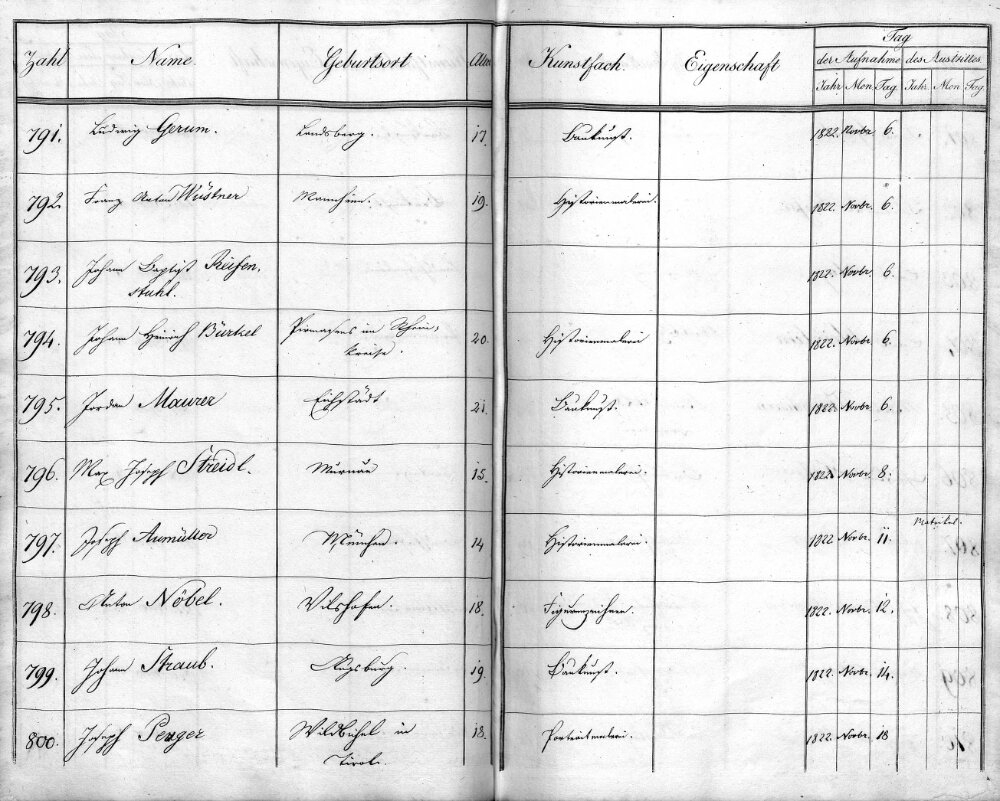 Zahl Name Geburtsort Alter Kunstfach. Eigenschaft Tag
der Aufnahme des Austrittes
Jahr Mon. Tag. Jahr. Mon Tag.
791. Ludwig Gerum. Landsberg. 17. Baukunst. 1822. Novbr. 6.
792. Franz Anton Wüstner Mannheim. 19. Historienmalerei. 1822. Novbr. 6.
793. Johann Baptist Reifen- 1822. Novbr. 6.
stuhl.
794. Johann Heinrich Bürkel Pirmasens im Rhein- 20. Historienmalerei 1822. Novbr. 6.
kreise.
795. Jordan Maurer Eichstädt 21. Baukunst. 1822. Novbr. 6.
796. Max Joseph Streidl. Murnau 15. Historienmalerei. 1822 Novbr. 8.
Matrikel.
797. Joseph Aumüller München. 14 Historienmalerei. 1822 Novbr. 11.
798. Anton Nöbel. Vilshofen. 18. Figurenzeichnen. 1822. Novbr. 12.
799. Johann Straub. Augsburg. 19. Baukunst. 1822. Novbr. 14.
800. Joseph Perger Wildbichel in 18. Portraitmalerei. 1822. Novbr. 18
Tirol.